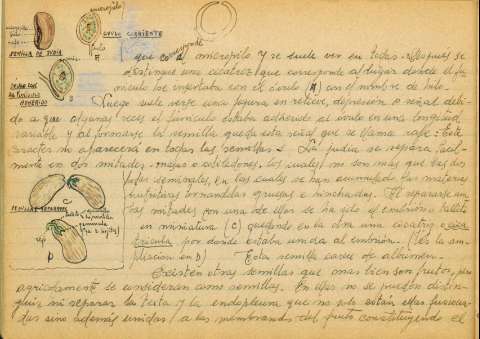 micropilo
OVULO CORRIENTE
SEMILLA DE JUDIA
hilo
A
que corresponde al micropilo y se suele ver en todas. Después se
distingue una cicatriz que corresponde al lugar donde el fu-
nículo se insertaba con el óvulo (A) con el nombre de hilo.
Luego suele verse una línea en relieve, depresión o señal debi-
do a que algunas veces el funículo estaba adherido al óvulo en una longitud
variable y al formarse la semilla queda esta señal que se llama rafe. Este
caracter no aparecerá en todas las semillas. La judía se separa facil-
mente en dos mitades o cotiledones, los cuales no son más que las dos
hojas seminales, en las cuales se han acumulado las materias
nutritivas tornandolas gruesas e hinchadas. Al separarse en
dos mitades con una de ellas se ha ido el embrión o tallito
en miniatura (C) quedando en la otra una cicatriz o cica-
tricula por donde estaba unida al embrión. (Ver la am-
pliación en D) Esta semilla carece de albumen.
C
D
Existen otras semillas que mas bien son frutos, pero
agricolamente se consideran como semillas. En ellas no se pueden distin-
guir ni separar la testa y la endopleura que no solo están ellas fusiona-
das sino además unidas a las membranas del fruto constituyendo el